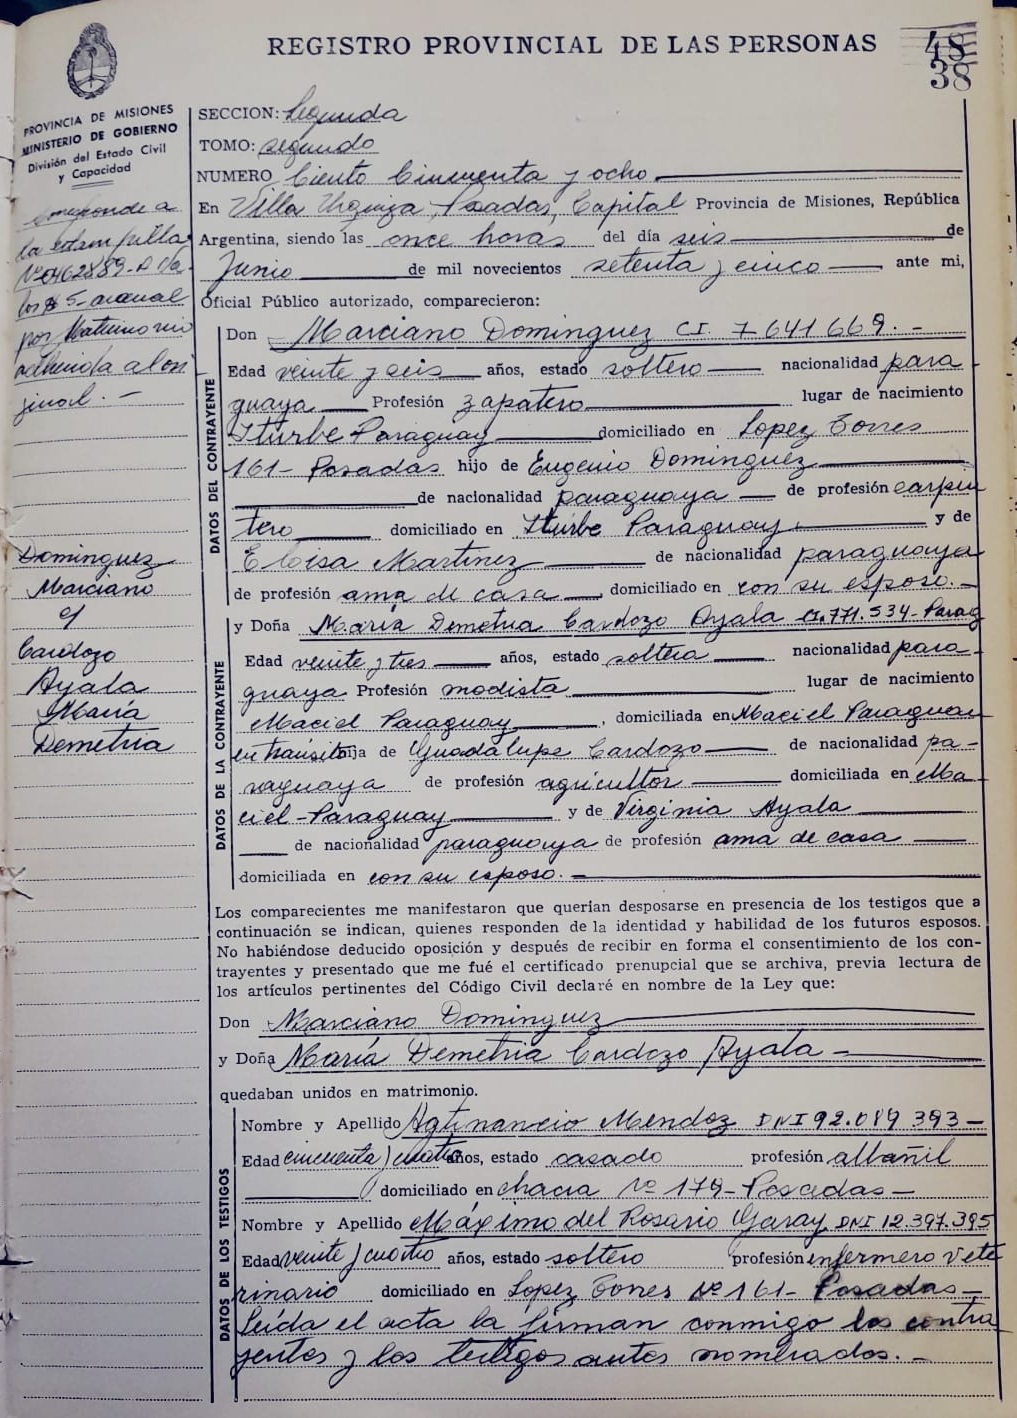 REGISTRO PROVINCIAL DE LAS PERSONAS
48
38
PROVINCIA DE MISIONES
MINISTERIO DE GOBIERNO
División del Estado Civil
y Capacidad
Corresponde a
la estampilla
Nº 0462889-A Va-
lor $ 5- anual
por Matrimonio
adherida al ori
ginal. -
Dominguez
Marciano
c/
Cardozo
Ayala
María
Demetria
SECCION: Segunda
TOMO: segundo
NUMERO Ciento Cincuenta y ocho
En Villa Urquiza, Posadas, Capital Provincia de Misiones, República
Argentina, siendo las once horas del día seis de
Junio de mil novecientos setenta y cinco ante mi,
Oficial Público autorizado, comparecieron:
DATOS DEL CONTRAYENTE
Don Marciano Dominguez CI 7641669. -
Edad veinte y seis años, estado soltero nacionalidad para
guaya Profesión zapatero lugar de nacimiento
Iturbe Paraguay domiciliado en Lopez Torres
161- Posadas hijo de Eugenio Dominguez
de nacionalidad paraguaya de profesión carpin
tero domiciliado en Iturbe Paraguay y de
Eloisa Martinez de nacionalidad paraguaya
de profesión ama de casa, domiciliado en con su esposo. -
DATOS DE LA CONTRAYENTE
y Doña María Demetria Cardozo Ayala CI.771.534-Parag
Edad veinte y tres años, estado soltera nacionalidad para-
guaya Profesión modista lugar de nacimiento
Maciel Paraguay, domiciliada en Maciel Paraguay
en transito hija de Guadalupe Cardozo de nacionalidad pa-
raguaya de profesión agricultor domiciliada en Ma
ciel-Paraguay y de Virginia Ayala
de nacionalidad paraguaya de profesión ama de casa
domiciliada en con su esposo. -
Los comparecientes me manifestaron que querían desposarse en presencia de los testigos que a
continuación se indican, quienes responden de la identidad y habilidad de los futuros esposos.
No habiéndose deducido oposición y después de recibir en forma el consentimiento de los con-
trayentes y presentado que me fué el certificado prenupcial que se archiva, previa lectura de
los artículos pertinentes del Código Civil declaré en nombre de la Ley que:
Don Marciano Dominguez
y Doña María Demetria Cardozo Ayala -
quedaban unidos en matrimonio.
DATOS DE LOS TESTIGOS
Nombre y Apellido Mendoz DNI 92.089 393-
Edad cincuenta y cuatro años, estado casado profesión albañil
domiciliado en chacra Nº 179-Posadas-
Nombre y Apellido Máximo del Rosario Garay DNI 12.397.395
Edad veinte y cuatro años, estado soltero profesión enfermero vete
rinario domiciliado en Lopez Torres Nº 161- Posadas-
Leída el acta la firman conmigo los contra
yentes y los testigos antes nombrados. -